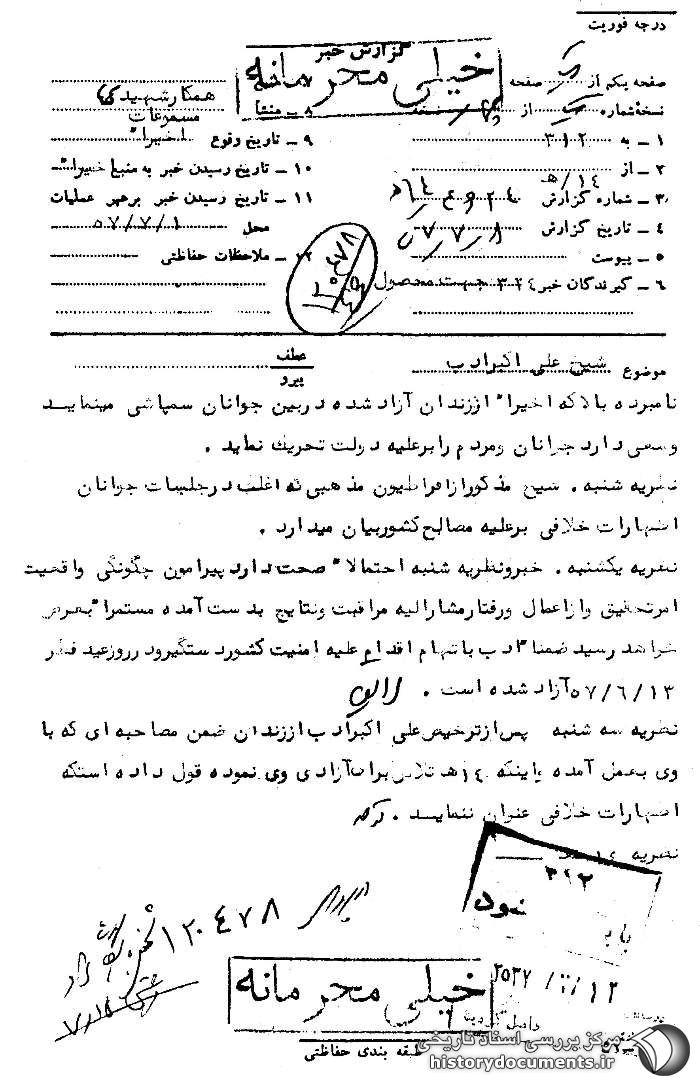 درجه فوریت
گزارش خبر
خیلی محرمانه
صفحه یکم از یک صفحه
نسخه شماره از
۱ ـ به ۳۱۲
۲ ـ از ۱۴/هـ
۳ـ شماره گزارش
۴ ـ تاریخ گزارش ۵۷/۷/۸
۵ ـ پیوست
۶ ـ گیرندگان خبر ۳۲۴ جهت محصول
همکار شهیدی
۸ ـ منشأ مسموعات
۹ ـ تاریخ وقوع اخیرا"
۱۰ ـ تاریخ رسیدن خبر به منبع اخیرا"
۱۱ ـ تاریخ رسیدن خبر برهبر عملیات
محل ۵۷/۷/۱
۱۲ ـ ملاحظات حفاظتی
۱۲۰۴۷۸
موضوع شیخ علی اکبر ادب
عطف
پیرو
نامبرده بالا که اخیرا" از زندان آزاد شده در بین جوانان سمپاشی مینماید
وسعی دارد جوانان ومردم را برعلیه دولت تحریک نماید .
نظریه شنبه . شیخ مذکور از افراطیون مذهبی که اغلب در جلسات جوانان
اظهارات خلافی برعلیه مصالح کشور بیان میدارد .
نظریه یکشنبه . خبر ونظریه شنبه احتمالا" صحت دارد پیرامون چگونگی واقعیت
امر تحقیق واز اعمال ورفتار مشارالیه مراقبت ونتایج بدست آمده مستمرا" بعرض
خواهد رسید ضمنا" ادب باتهام اقدام علیه امنیت کشور دستگیر ودر روز عید فطر
۵۷/۶/۱۳ آزاد شده است .
نظریه سه شنبه پس از ترخیص علی اکبر ادب از زندان ضمن مصاحبه ای که با
وی بعمل آمده باینکه ۱۴هـ تلاش برای آزادی وی نموده قول داده استکه
اظهارات خلافی عنوان ننماید .
نظریه
۳۱۲
نمود
۱۲۰۴۷۸
۷/۱۵
۲۵۳۷/۷/۱۲
خیلی محرمانه
طبقه بندی حفاظتی
مرکز بررسی اسناد تاریخی
historydocuments.ir